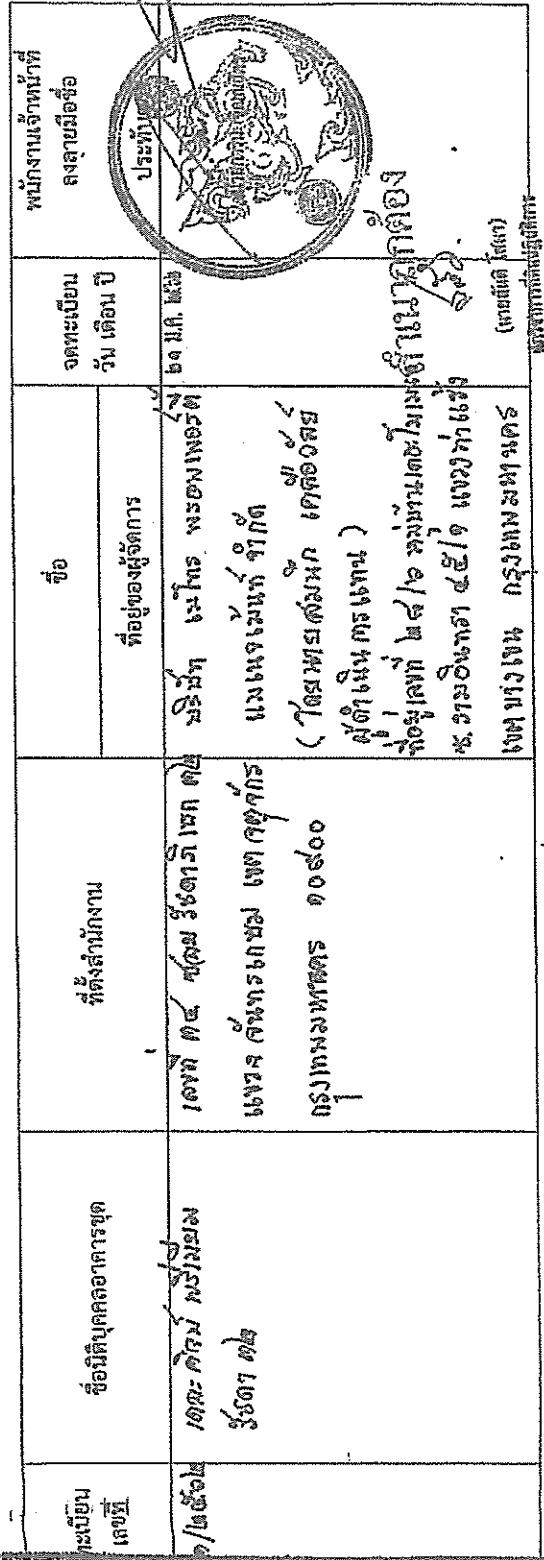 ทะเบียน
เลขที่
ชื่อนิติบุคคลอาคารชุด
ที่ตั้งสำนักงาน
ชื่อ
ที่อยู่ของผู้จัดการ
จดทะเบียน
วัน เดือน ปี
พนักงานเจ้าหน้าที่
ลงลายมือชื่อ
ประทับ
๑/๒๕๖๒
เดอะ คิทท์ พรีเมี่ยม
รัชดา ๓๒
เลขที่ ๓๔ ซอย รัชดาภิเษก ๓๒
แขวง จันทรเกษม เขต จตุจักร
กรุงเทพมหานคร ๑๐๙๐๐
บริษัท เมโทร พรอพเพอร์ตี้
แมเนจเม้นท์ จำกัด
(โดยนายสมนึก เคลือวัลย์
ผู้ดำเนินการแทน)
ที่อยู่เลขที่ ๒๘/๖ หมู่บ้าน
ซ.รามอินทรา ๔๕/๑ แขวงท่าแร้ง
เขต บางเขน กรุงเทพมหานคร
๒๑ ม.ค. ๒๕๖๒
สำเนาถูกต้อง